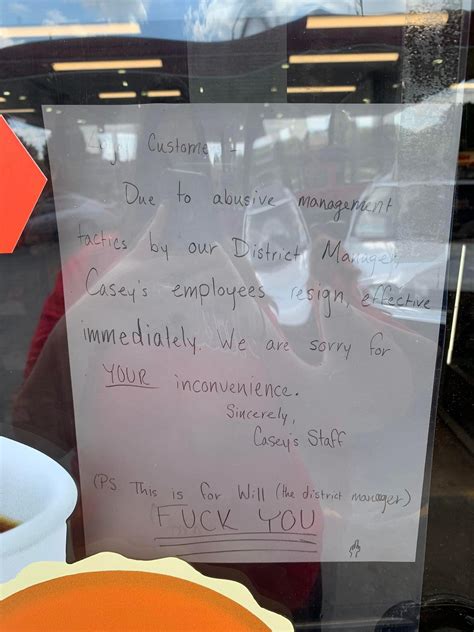 Loyal Customers,
Due to abusive management
tactics by our District Manager,
Casey's employees resign, effective
immediately. We are sorry for
YOUR inconvenience.
Sincerely,
Casey's Staff
(PS. This is for Will (the district manager)
FUCK YOU